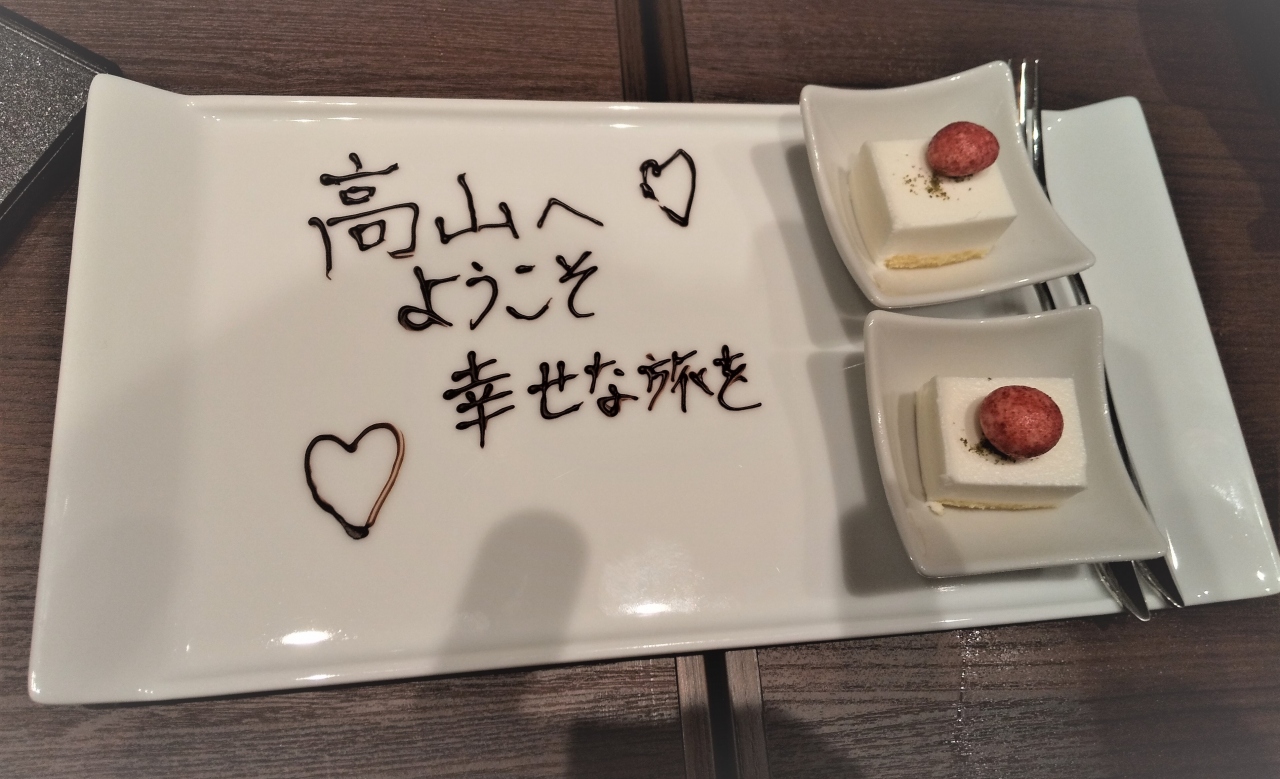 高山へ
ようこそ
幸せな旅を